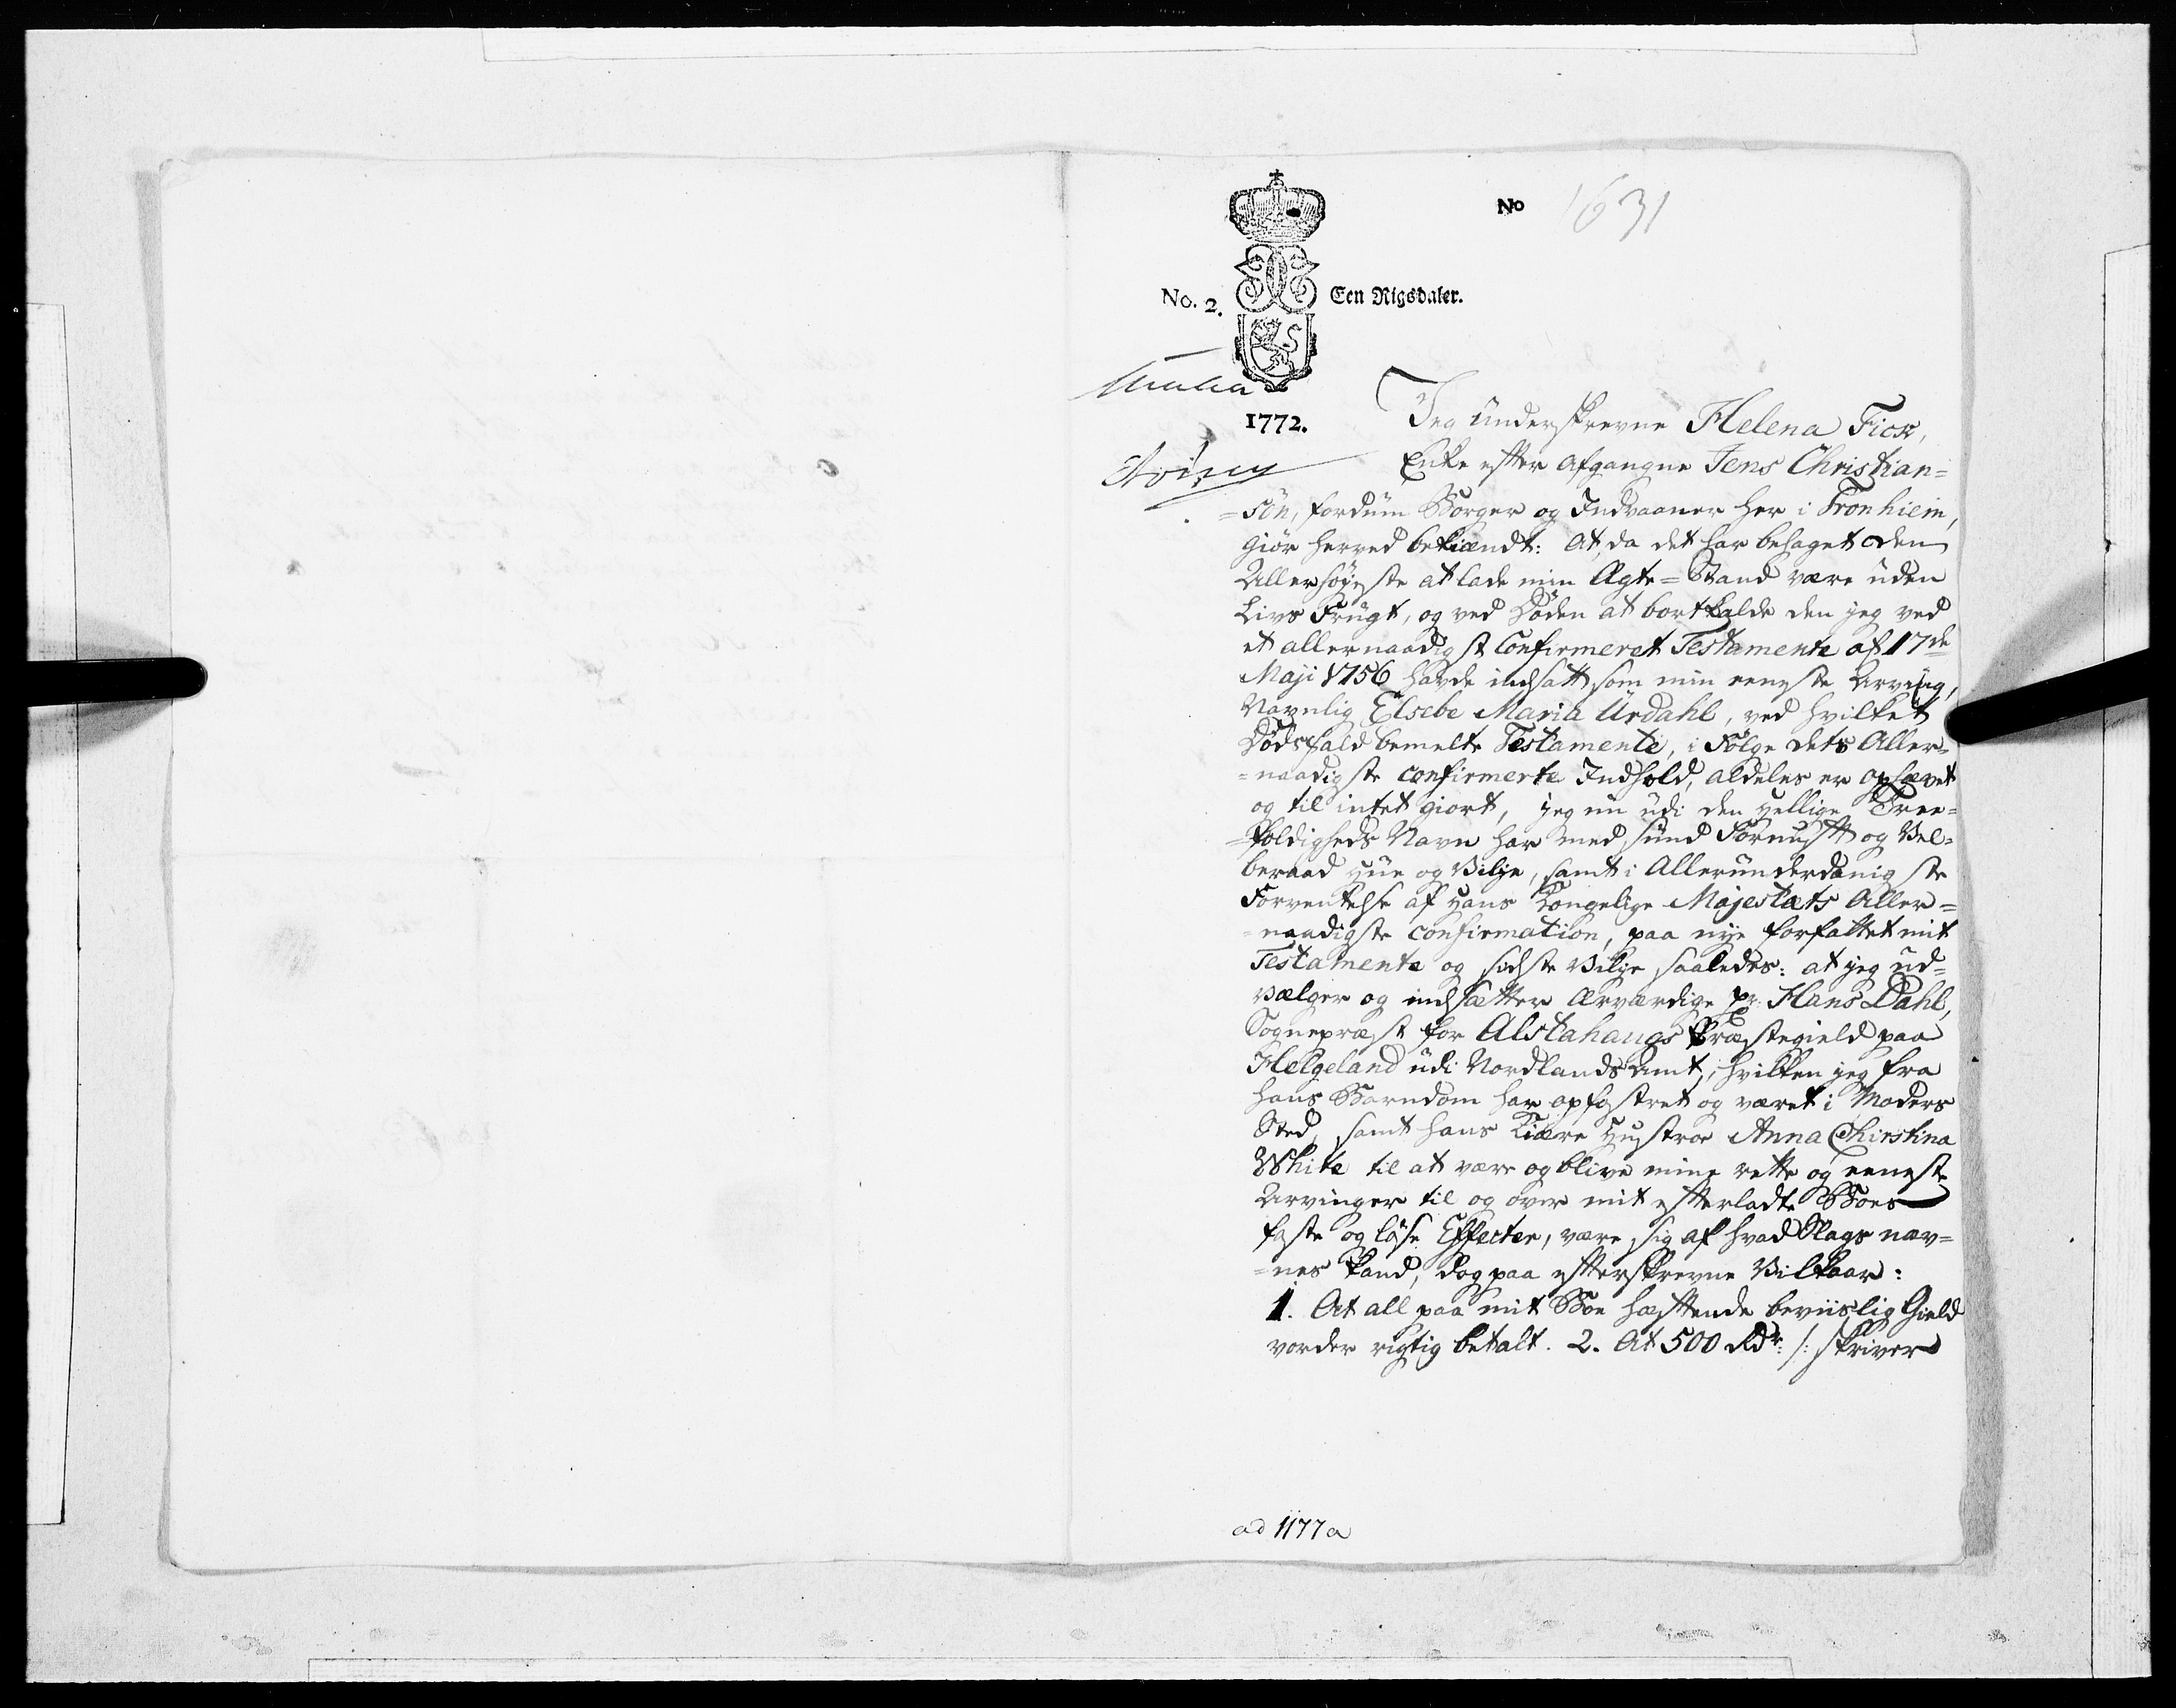 No 1631
No. 2. Een Rigsdaler.
1772.
Jeg underskrevne Helena Fick,
Enke efter afgangne Jens Christian=
=sön, fordum Borger og Indvaaner her i Tronhiem,
giör herved bekiændt: At, da det har behaget den
Allerhöyeste at lade min Ægte=Stand være uden
Livs Frugt, og ved Döden at bortkalde den jeg ved
et allernaadigst Confirmeret Testamente af 17de
Maji 1756 havde indsatt som min eeneste Arving,
Navnlig Elsebe Maria Urdahl, ved hvilket
Dödsfald bemelte Testamente, i Fölge dets Aller=
=naadigste confirmerte Indhold, aldeles er ophævet
og til intet giort, jeg nu udi den Hellige Tree=
=foldigheds Navn har med sund Fornuft og Vel=
beraad Hue og Vilje, samt i Allerunderdanigste
Forventelse af Hans Kongelige Majestæts Aller=
=naadigste confirmation, paa nye forfattet mit
Testamente og sidste Vilje saaledes: at jeg ud=
vælger og indsætter Ærværdige Hr. Hans Dahl,
Sognepræst for Alstahaugs Præstegield paa
Helgeland udi Nordlands Amt, hvilken jeg fra
hans Barndom har opfostret og været i Moders
Sted, samt hans Kiære Hustroe Anna Chirstina
White til at være og blive mine rette og eeneste
Arvinger til og over mit efterladte Boes
faste og löse Effecter, være sig af hvad Slags næv=
=nes kand, dog paa efterskrevne Vilkaar:
1. At all paa mit Boe hæftende beviislig Gield
vorder rigtig betalt. 2. At 500 Rdr: /: skriver
ad 1177a